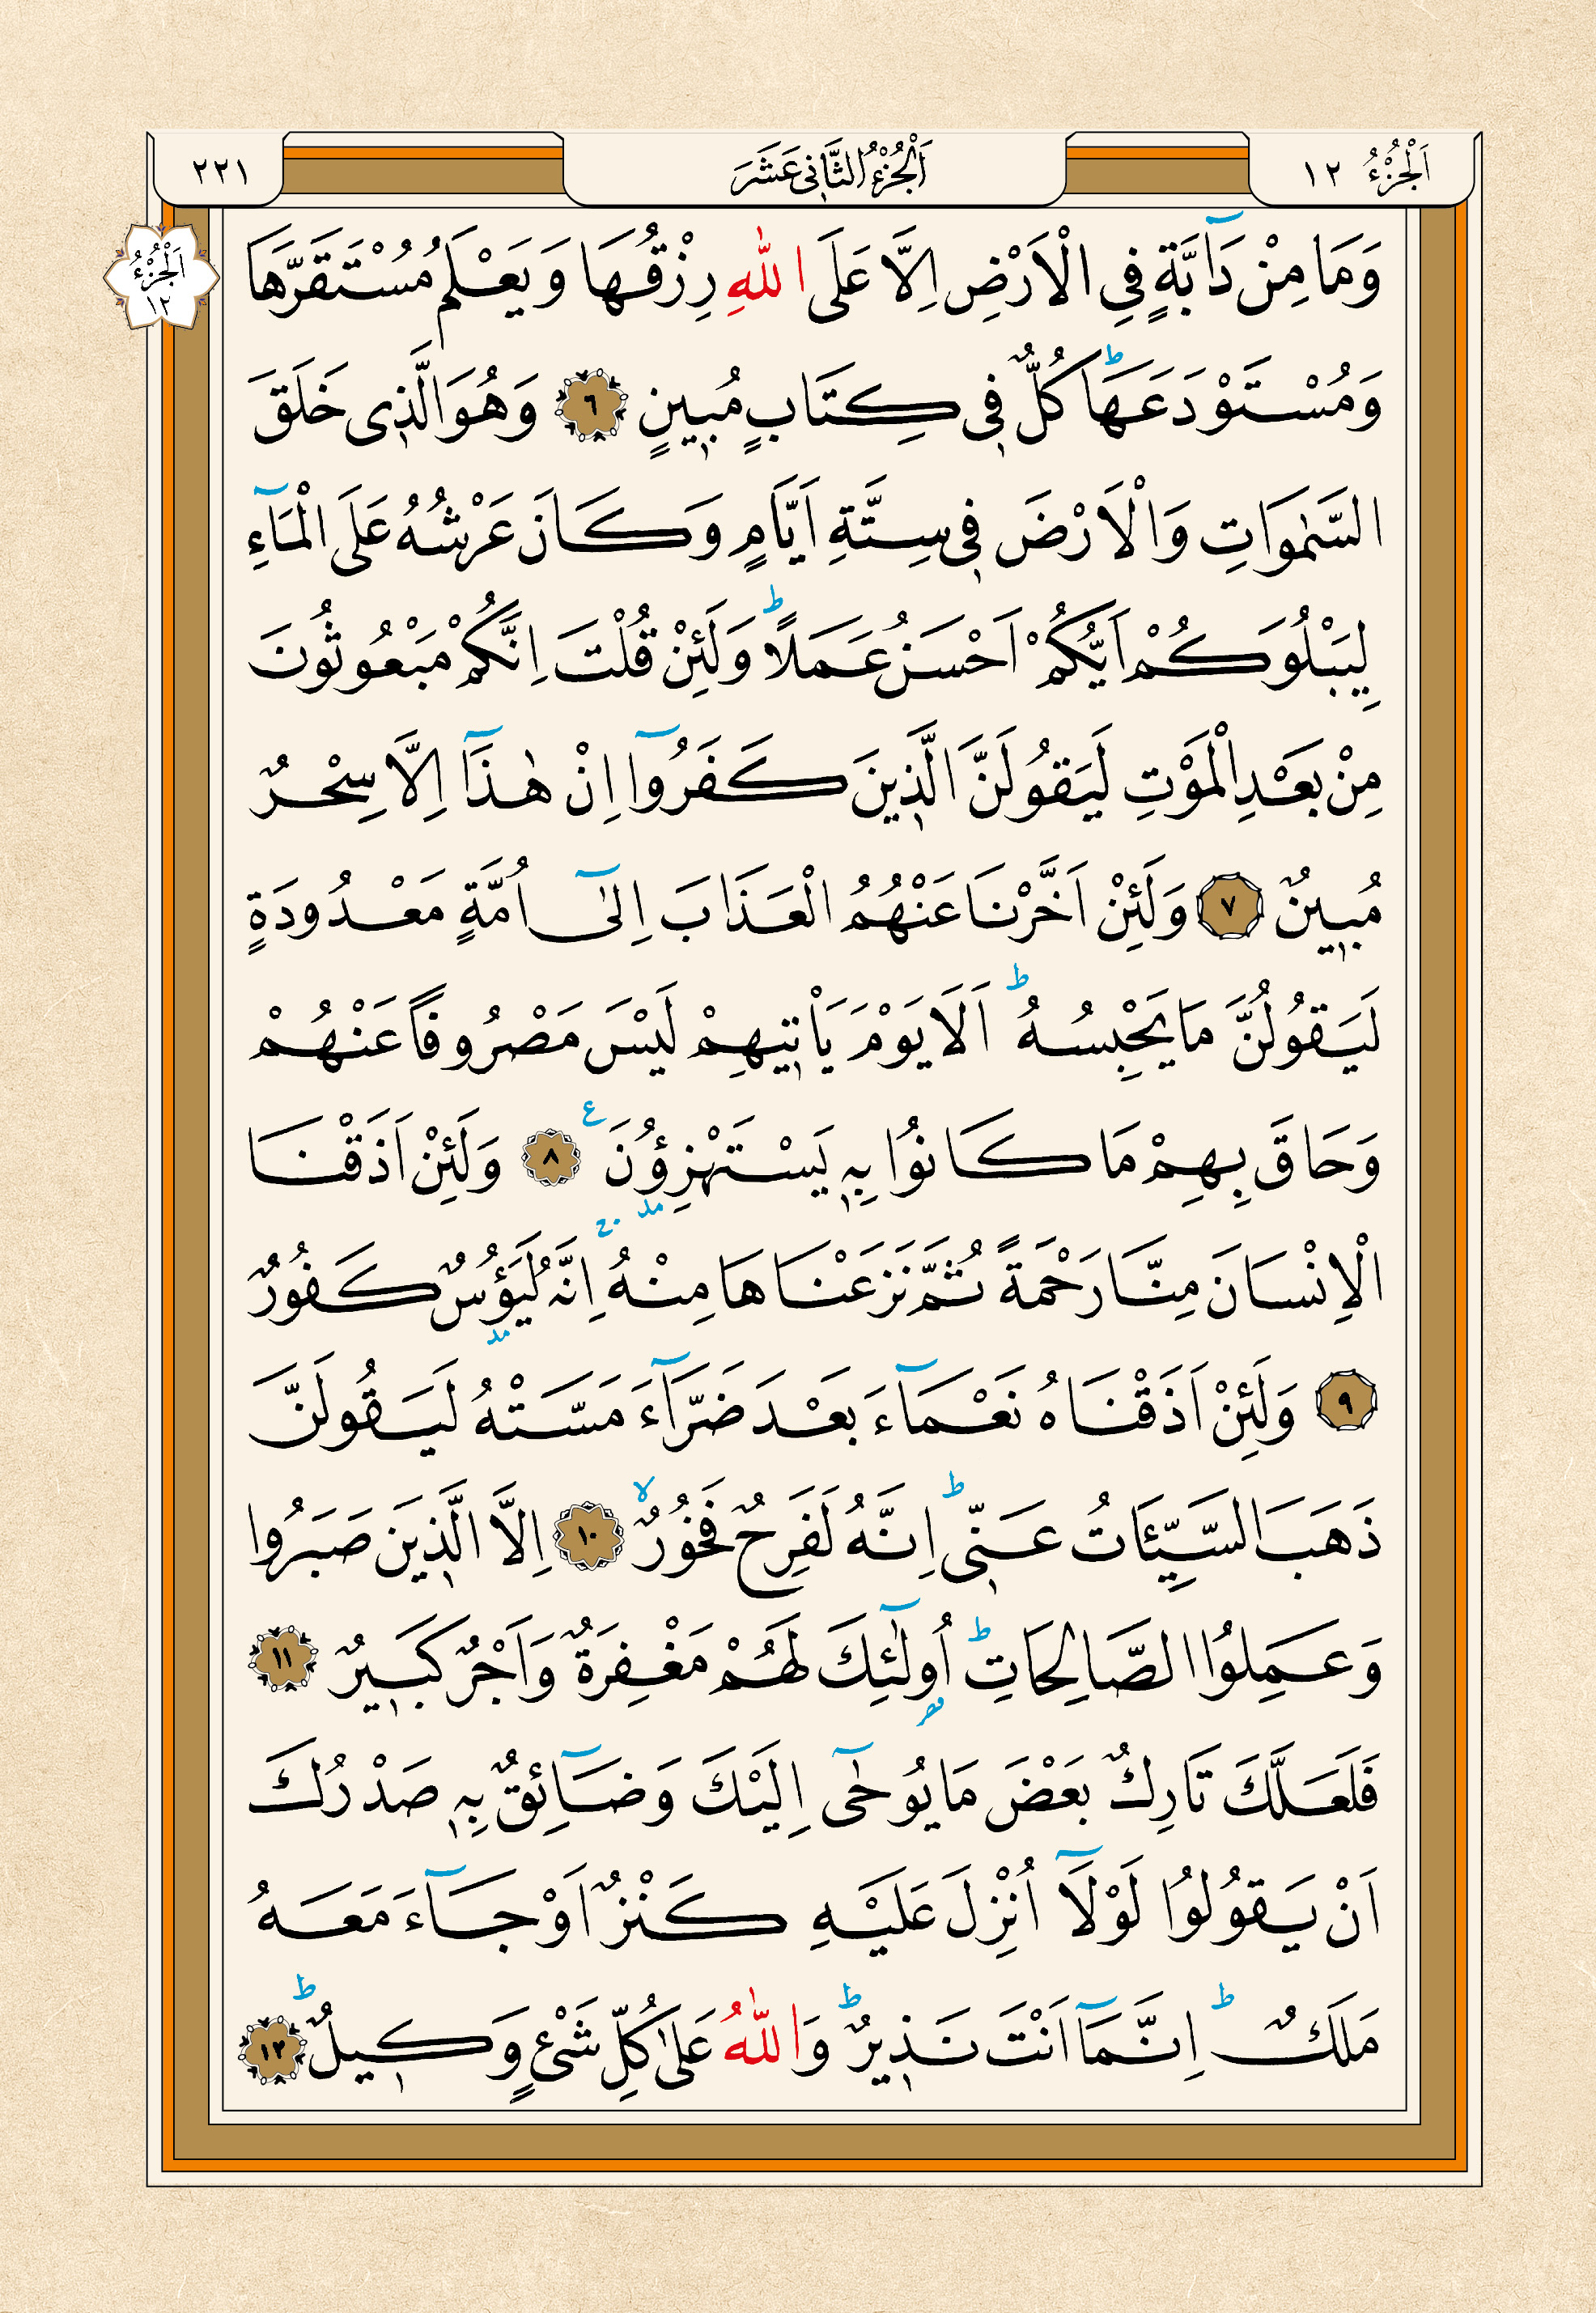 اَلْجُزْءُ ١٢
اَلْجُزْءُ الثَّانٖى عَشَرَ
٢٢١
اَلْجُزْءُ
١٢
وَمَا مِنْ دَٓابَّةٍ فِي الْاَرْضِ اِلَّا عَلَى اللّٰهِ رِزْقُهَا وَيَعْلَمُ مُسْتَقَرَّهَا
وَمُسْتَوْدَعَهَاؕ كُلٌّ فٖى كِتَابٍ مُبٖينٍ ٦ وَهُوَ الَّذٖى خَلَقَ
السَّمٰوَاتِ وَالْاَرْضَ فٖى سِتَّةِ اَيَّامٍ وَكَانَ عَرْشُهُ عَلَى الْمَٓاءِ
لِيَبْلُوَكُمْ اَيُّكُمْ اَحْسَنُ عَمَلًاؕ وَلَئِنْ قُلْتَ اِنَّكُمْ مَبْعُوثُونَ
مِنْ بَعْدِ الْمَوْتِ لَيَقُولَنَّ الَّذٖينَ كَفَرُٓوا اِنْ هٰذَٓا اِلَّا سِحْرٌ
مُبٖينٌ ٧ وَلَئِنْ اَخَّرْنَا عَنْهُمُ الْعَذَابَ اِلٰٓى اُمَّةٍ مَعْدُودَةٍ
لَيَقُولُنَّ مَا يَحْبِسُهُؕ اَلَا يَوْمَ يَاْتٖيهِمْ لَيْسَ مَصْرُوفًا عَنْهُمْ
وَحَاقَ بِهِمْ مَا كَانُوا بِهٖ يَسْتَهْزِؤُنَ ع ٨ وَلَئِنْ اَذَقْنَا
الْاِنْسَانَ مِنَّا رَحْمَةً ثُمَّ نَزَعْنَاهَا مِنْهُۚ اِنَّهُ لَيَؤُسٌ كَفُورٌ
٩ وَلَئِنْ اَذَقْنَاهُ نَعْمَٓاءَ بَعْدَ ضَرَّٓاءَ مَسَّتْهُ لَيَقُولَنَّ
ذَهَبَ السَّيِّئَاتُ عَنّٖىؕ اِنَّهُ لَفَرِحٌ فَخُورٌۙ ١٠ اِلَّا الَّذٖينَ صَبَرُوا
وَعَمِلُوا الصَّالِحَاتِؕ اُولٰٓئِكَ لَهُمْ مَغْفِرَةٌ وَاَجْرٌ كَبٖيرٌ ١١
فَلَعَلَّكَ تَارِكٌ بَعْضَ مَا يُوحٰٓى اِلَيْكَ وَضَٓائِقٌ بِهٖ صَدْرُكَ
اَنْ يَقُولُوا لَوْلَٓا اُنْزِلَ عَلَيْهِ كَنْزٌ اَوْ جَٓاءَ مَعَهُ
مَلَكٌؕ اِنَّمَٓا اَنْتَ نَذٖيرٌؕ وَاللّٰهُ عَلٰى كُلِّ شَىْءٍ وَكٖيلٌؕ ١٢